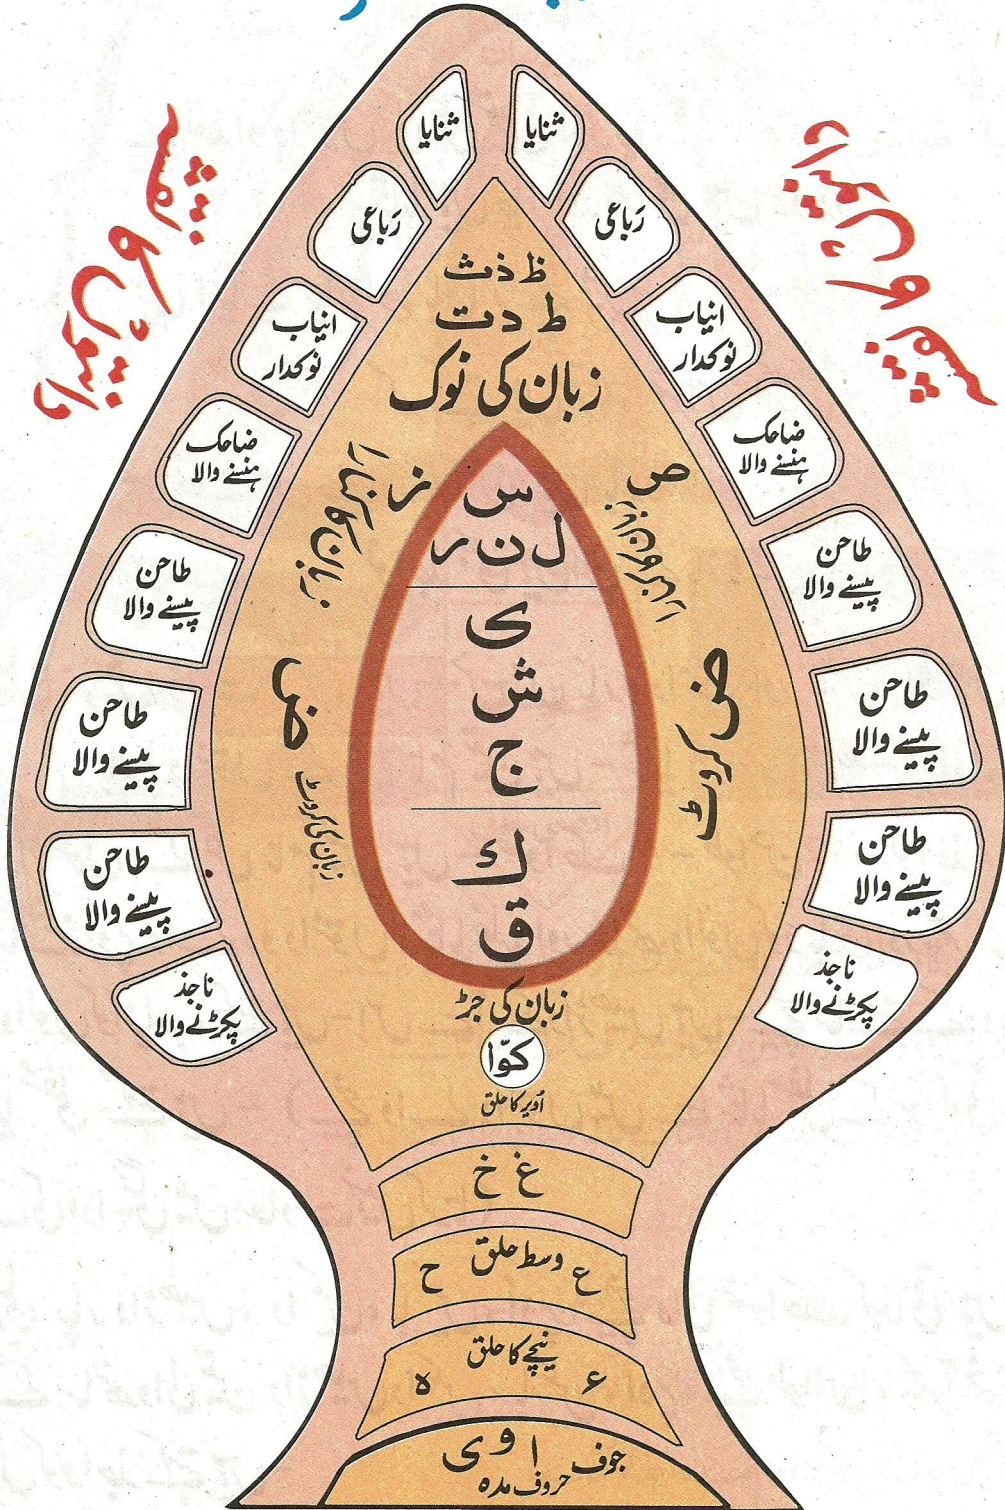 دانتوں کا نقشہ
ثنایا
ثنایا
رَباعی
رَباعی
انیاب
نوکدار
انیاب
نوکدار
ضاحک
ہنسنے والا
ضاحک
ہنسنے والا
طاحن
پیسنے والا
طاحن
پیسنے والا
طاحن
پیسنے والا
طاحن
پیسنے والا
طاحن
پیسنے والا
طاحن
پیسنے والا
ناجذ
پکڑنے والا
ناجذ
پکڑنے والا
ظ ذ ث
ط د ت
زبان کی نوک
ص
ز
زبان کا کنارا
س
ل ن ر
ی
ش
ج
ك
ق
ض کروٹ
ض
زبان کی کروٹ
زبان کی جڑ
کوّا
اُوپر کا حلق
غ خ
ع وسط حلق ح
نیچے کا حلق
ء ہ
جوف ا و ی
حروف مدہ